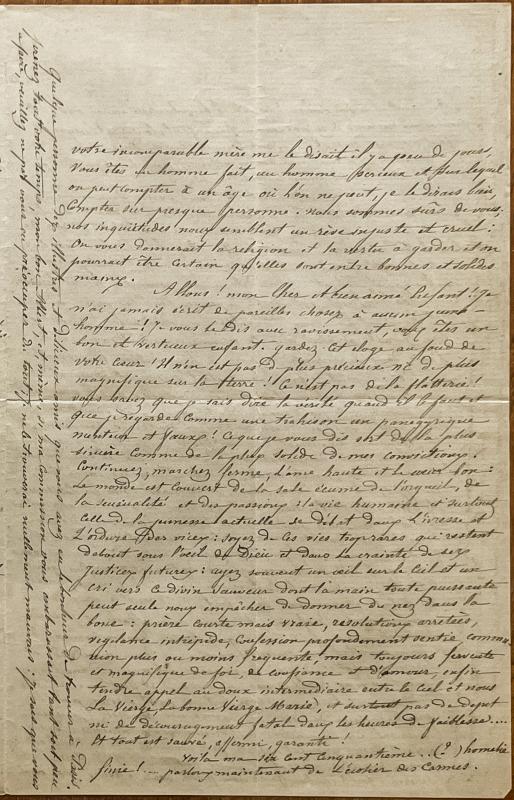 votre incomparable mère me le disait il y a peu de jours,
Vous êtes un homme fait, un homme sérieux et sur lequel
on peut compter à un âge où l'on ne peut, je le dirais bien
compter sur presque personne. Nous sommes sûrs de vous.
nos inquiétudes nous semblent un rêve injuste et cruel :
On vous donnerait la religion et la vertu à garder et on
pourrait être certain qu'elles sont entre bonnes et solides
mains.
Allons ! mon cher et bien aimé Enfant ! Je
n'ai jamais écrit de pareilles choses à aucun jeune-
homme ! Je vous le dis avec ravissement, vous êtes un
bon et vertueux enfant. gardez cet éloge au fond de
votre cœur ! Il n'en est pas de plus précieux ni de plus
magnifique sur la terre ! Ce n'est pas de la flatterie !
vous savez que je sais dire la vérité quand il le faut et
que je regarde comme une trahison un panégyrique
menteur et faux ! Ce que je vous dis sort de la plus
sincère comme de la plus solide de mes convictions.
Continuez, marchez ferme, l'âme haute et le cœur bon :
le monde est couvert de la sale écume de l'orgueil, de
la sensualité et des passions : la vie humaine et surtout
celle de la jeunesse actuelle se débat dans l'ivresse et
l'ordure des vices : soyez de ces vies trop rares qui restent
debout sous l'œil de Dieu et dans la crainte de ses
justices futures : ayez souvent un œil sur le Ciel et un
cri vers ce divin Sauveur dont la main toute puissante
peut seule nous empêcher de donner du nez dans la
boue : prière courte mais vraie, résolutions arrêtées,
vigilance intrépide, confession profondément sentie commu-
nion plus ou moins fréquente, mais toujours fervente
et magnifique de foi, de confiance et d'amour, enfin
tendre appel au doux intermédiaire entre le Ciel et nous
la Vierge, la bonne Vierge Marie, et surtout pas de dépit
ni de découragement fatal dans les heures de faiblesse....
Et tout est sauvé, affermi, garanti !
Voilà ma six cent cinquantième.. (?) homélie
finie ! — parlons maintenant de l'écolier des Carmes.
Quelque personne des illustres et délicieux amis que vous avez eu le bonheur de trouver à Paris.
prenez tout votre temps, mon bon Albert, et même, si ma commission vous embarrassait tant soit peu
à faire, veuillez ne pas vous en préoccuper du tout, je ne le trouverai nullement mauvais : je sais que vous